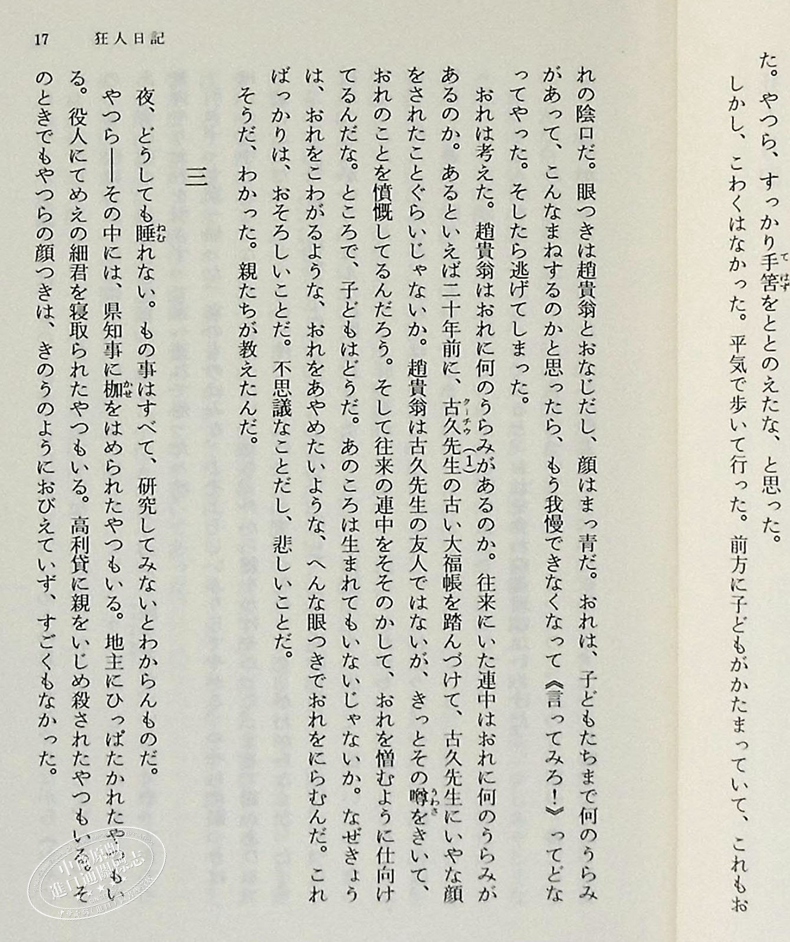 た。やつら、すっかり手筈をととのえたな、と思った。
しかし、こわくはなかった。平気で歩いて行った。前方に子どもがかたまっていて、これもお
17 狂人日記
れの陰口だ。眼つきは趙貴翁とおなじだし、顔はまっ青だ。おれは、子どもたちまで何のうらみ
があって、こんなまねするのかと思ったら、もう我慢できなくなって《言ってみろ！》ってどな
ってやった。そしたら逃げてしまった。
おれは考えた。趙貴翁はおれに何のうらみがあるのか。往来にいた連中はおれに何のうらみが
あるのか。あるといえば二十年前に、古久先生(1)の古い大福帳を踏んづけて、古久先生にいやな顔
をされたことぐらいじゃないか。趙貴翁は古久先生の友人ではないが、きっとその噂をきいて、
おれのことを憤慨してるんだろう。そして往来の連中をそそのかして、おれを憎むように仕向け
てるんだな。ところで、子どもはどうだ。あのころは生まれてもいないじゃないか。なぜきょう
は、おれをこわがるような、おれをあやめたいような、へんな眼つきでおれをにらむんだ。これ
ばっかりは、おそろしいことだ。不思議なことだし、悲しいことだ。
そうだ、わかった。親たちが教えたんだ。
三
夜、どうしても睡れない。もの事はすべて、研究してみないとわからんものだ。
やつら――その中には、県知事に枷をはめられたやつもいる。地主にひっぱたかれたやつもい
る。役人にてめえの細君を寝取られたやつもいる。高利貸に親をいじめ殺されたやつもいる。そ
のときでもやつらの顔つきは、きのうのようにおびえていず、すごくもなかった。
て はず
クーチウ
うわさ
ねむ
かせ
中商原版